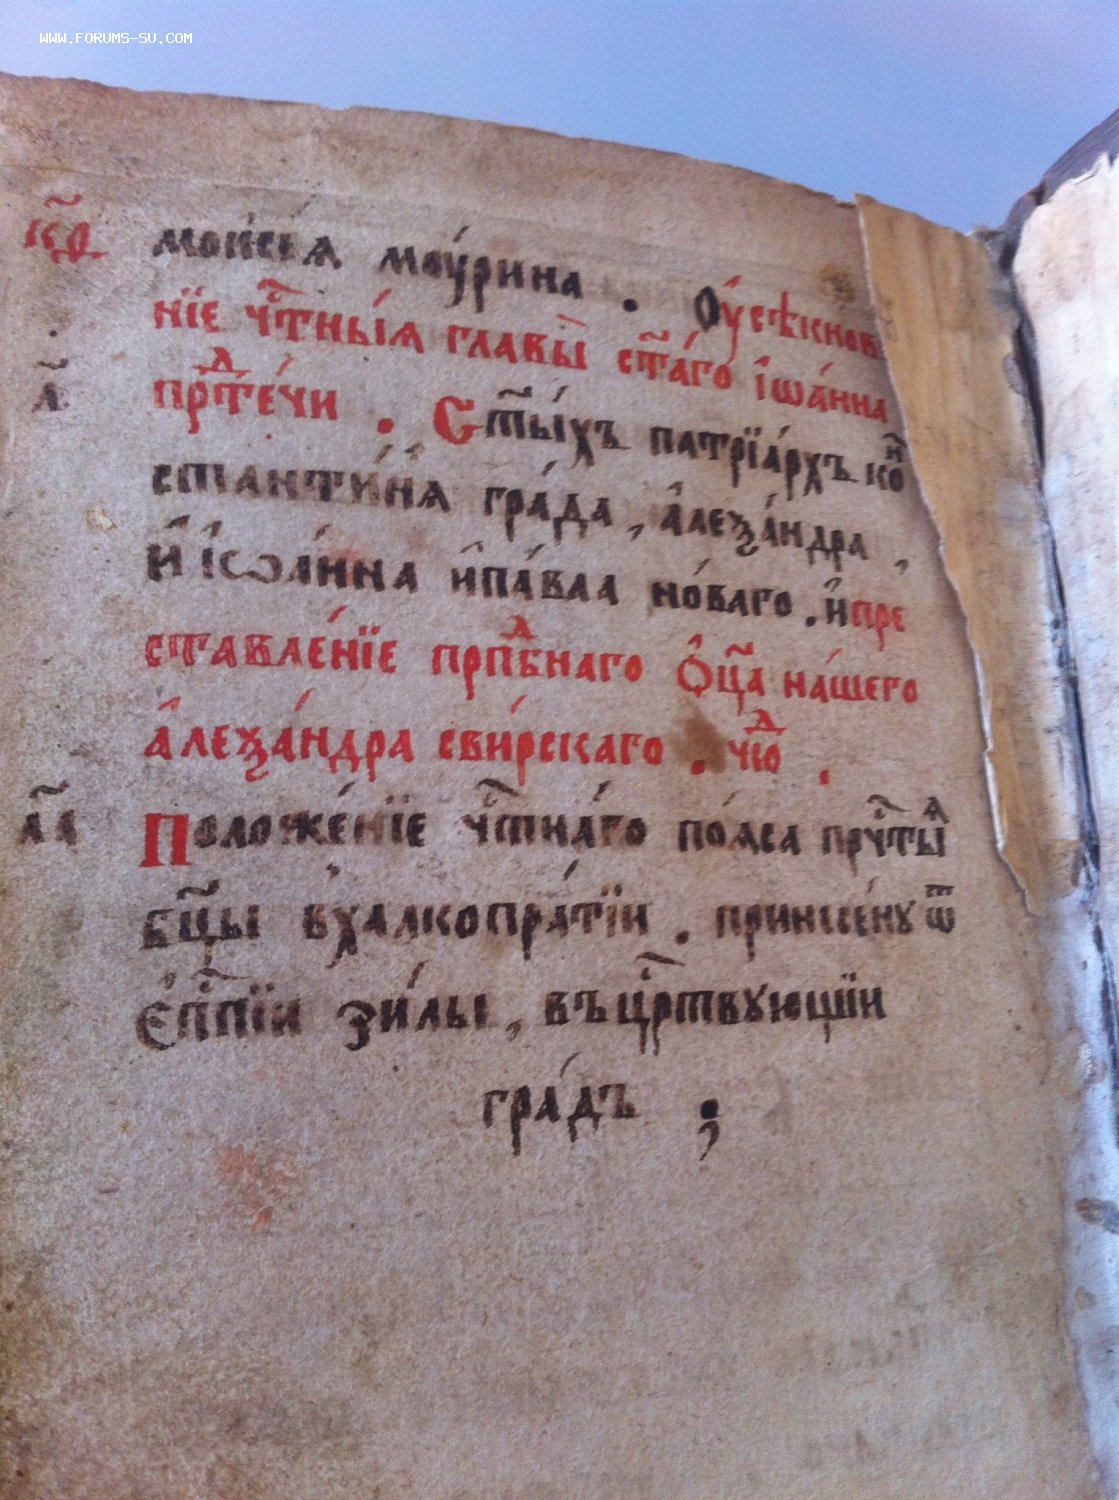 WWW.FORUMS-SU.COM
моѵсе́ѧ моу́рина . Оу҆сѣкнове
к҃ѳ нїе чⷭ҇тны́ѧ главы̀ ст҃а́го і҆ѡа́нна
л҃ прⷣте́чи . Ст҃ы́хъ патрїа́рхъ коⷩ
стѧнти́нѧ гра́да , а҆леѯа́ндра ,
и҆ і҆ѡа́нна и҆ па́вла но́ваго . и҆ пре
ставле́нїе прпⷣбнаго ѻ҆ц҃а на́шего
а҆леѯа́ндра сви́рскаго . чю́ⷣ .
л҃а Положе́нїе чⷭ҇тна́го по́ѧса прчⷭ҇тыѧ
бц҃ы в халкопра́тїи . принесе́ну ѿ
є҆п҃пїи зи́лы , въ црⷭ҇твующїи
гра́дъ ;